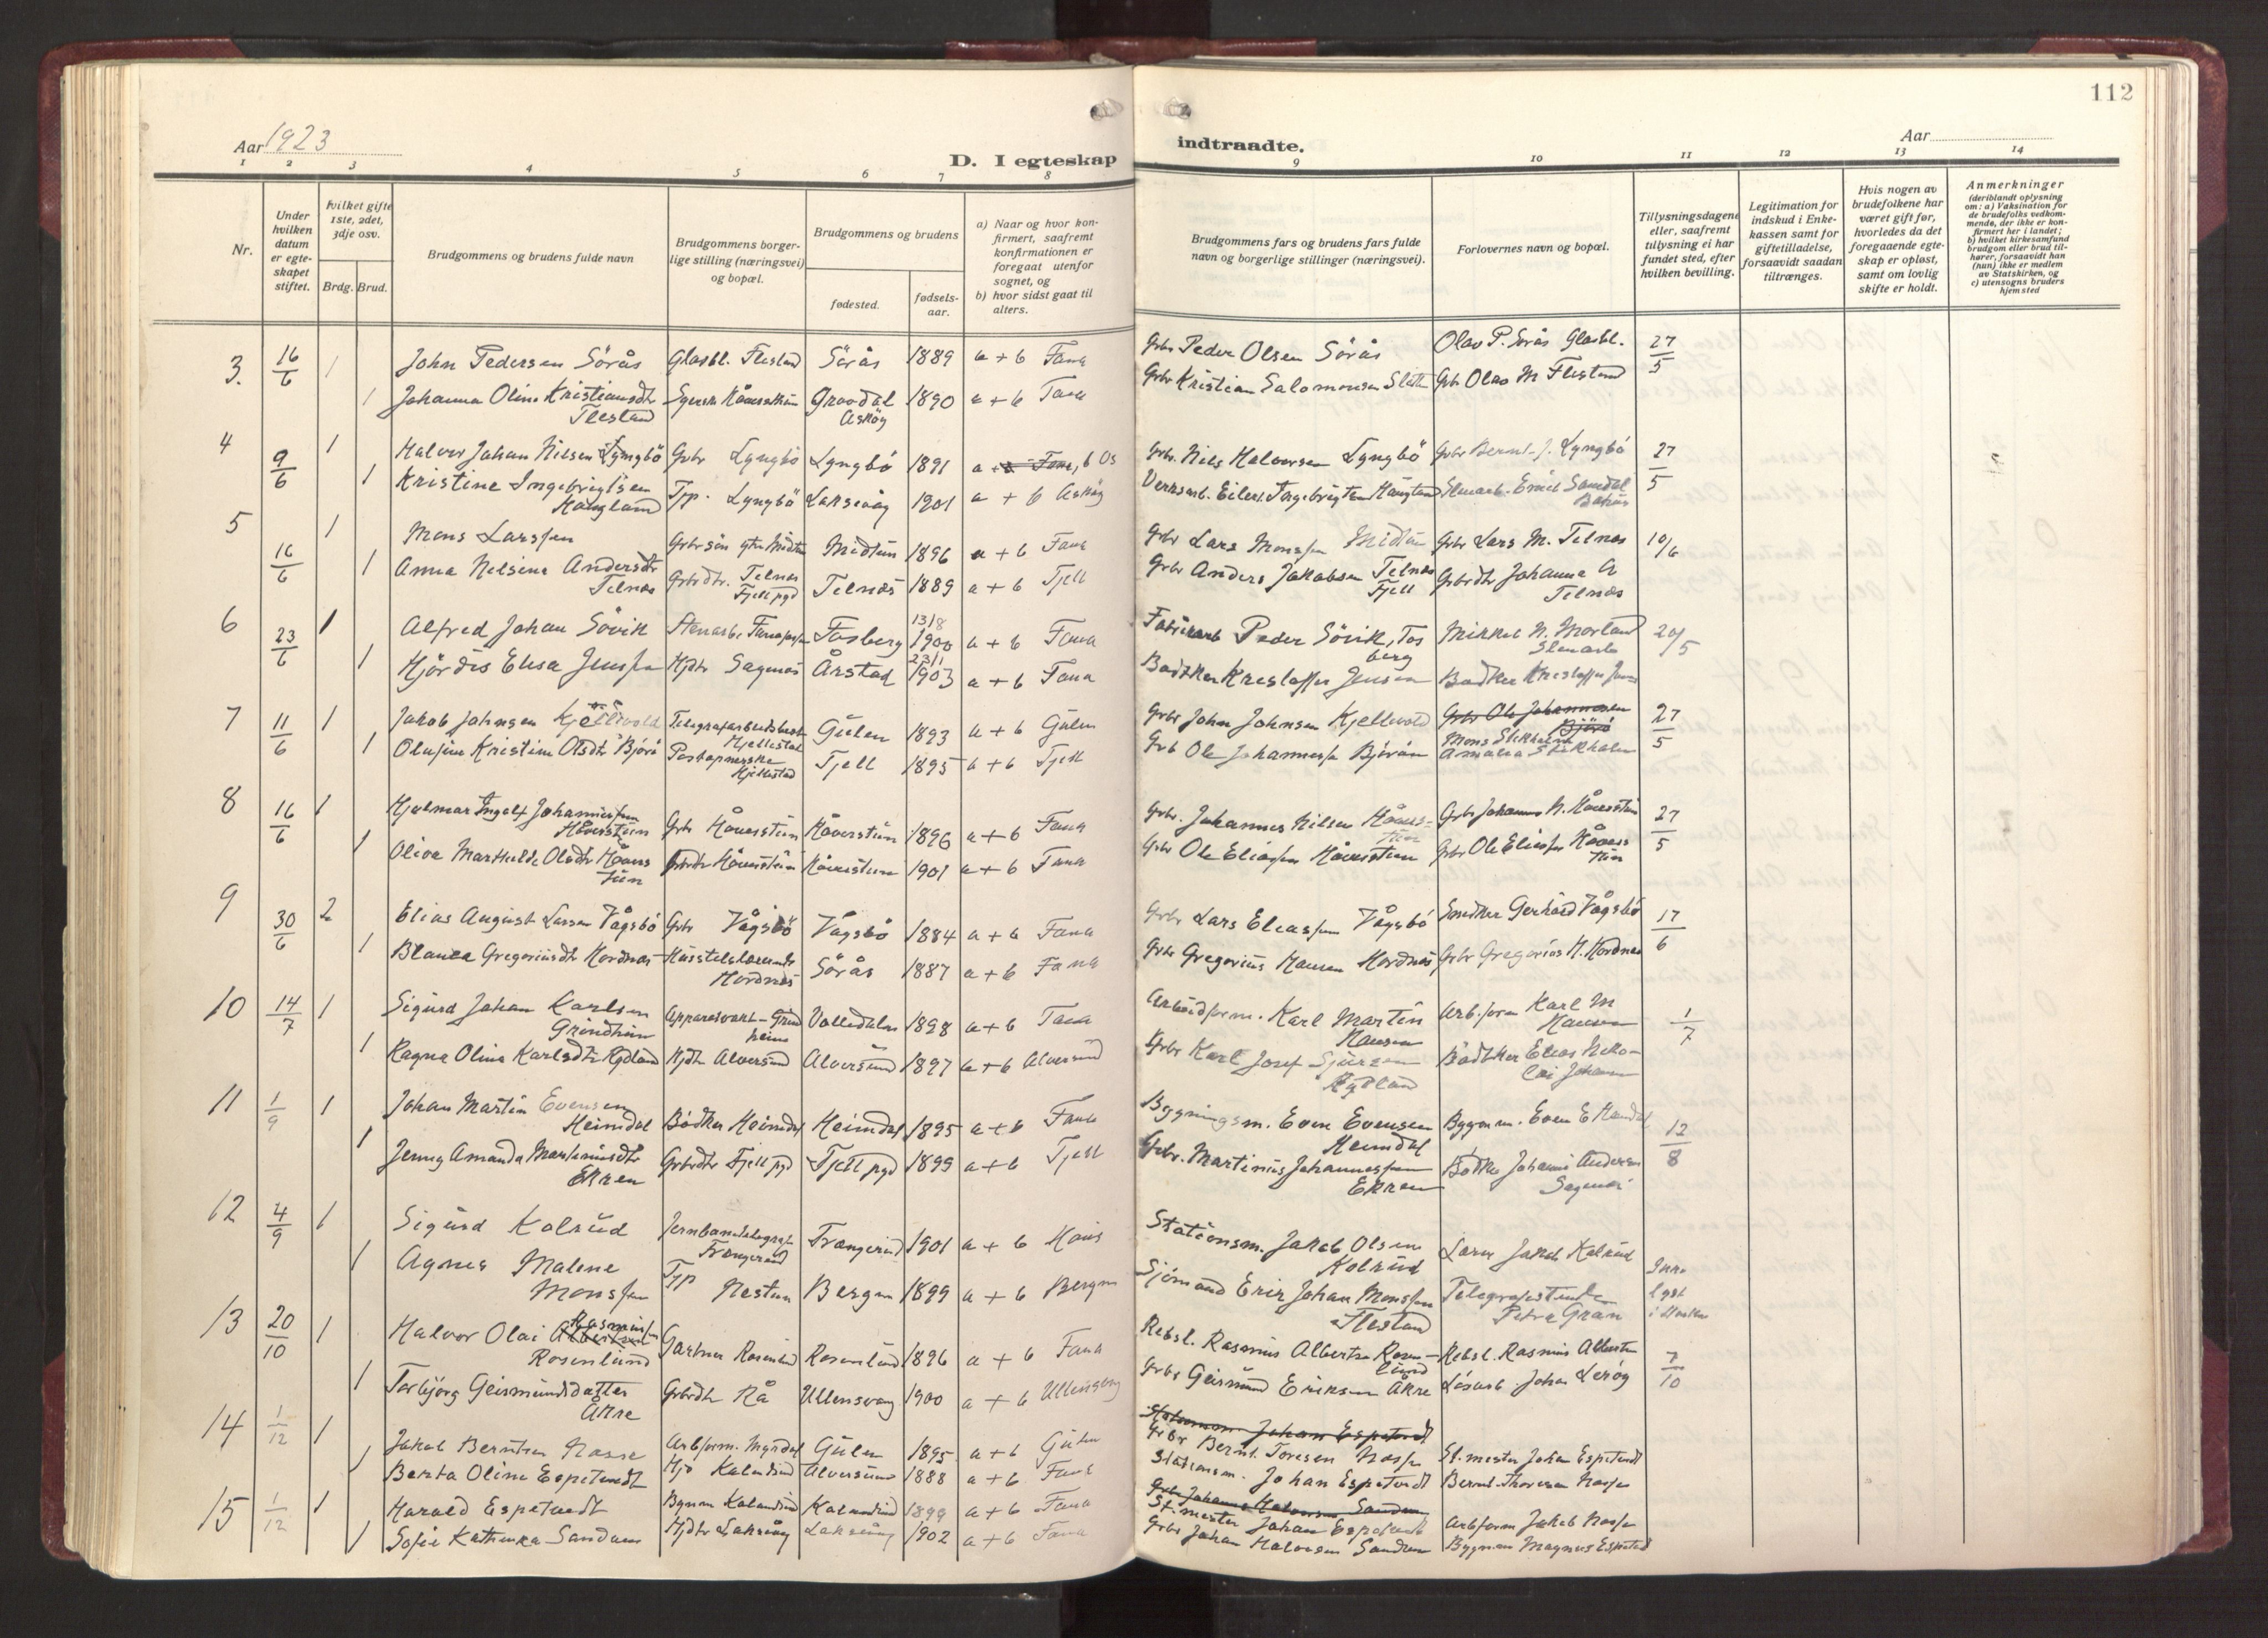 112
Aar 1923
D. I egteskap
indtraadte.
Aar
1 2 3 4 5 6 7 8 9 10 11 12 13 14
Nr.
Under hvilken datum er egteskapet stiftet.
hvilket gifte 1ste, 2det, 3dje osv.
Brdg. Brud.
Brudgommens og brudens fulde navn
Brudgommens borgerlige stilling (næringsvei) og bopæl.
Brudgommens og brudens
fødested.
fødselsaar.
a) Naar og hvor konfirmert, saafremt konfirmationen er foregaat utenfor sognet, og
b) hvor sidst gaat til alters.
Brudgommens fars og brudens fars fulde navn og borgerlige stillinger (næringsvei).
Forlovernes navn og bopæl.
Tillysningsdagene eller, saafremt tillysning ei har fundet sted, efter hvilken bevilling.
Legitimation for indskud i Enkekassen samt for giftetilladelse, forsaavidt saadan tiltrænges.
Hvis nogen av brudefolkene har været gift før, hvorledes da det foregaaende egteskap er opløst, samt om lovlig skifte er holdt.
Anmerkninger
(deriblandt oplysning om: a) Vaksination for de brudefolks vedkommende, der ikke er konfirmert her i landet;
b) hvilket kirkesamfund brudgom eller brud tilhører, forsaavidt han (hun) ikke er medlem av Statskirken, og
c) utensogns bruders hjemsted
3. 16/6 1 John Pedersen Sörås Glasbl. Flestad Sörås 1889 a + b Fana Grbr Peder Olsen Sörås Olav P. Sörås Glasbl. 27/5
1 Johanna Oline Kristiansdtr Flestad 1890 a + b Fana Grbr Kristian Salomonsen Grbr Olav M Flestad
Askøy
4 9/6 1 Halvor Johan Nilsen Lyngbö Grbr Lyngbö Lyngbö 1891 a + b Fana, b Os Grbr. Nils Halvorsen Lyngbö Grbr Bernt J. Lyngbö 27/5
1 Kristine Ingebrigtsen Haugland Tjp. Lyngbö Laksevåg 1901 a + b Askøy
5 16/6 1 Mons Larssen Midtun 1896 a + b Fana Grbr Lars Monssen Midtun Grbr Lars M. Telnes 10/6
1 Anna Nelsine Andersdtr Telnes Grbrdtr. Telnes Fjell pgd Telnes 1889 a + b Fjell Grbr Anders Jakobsen Telnes Fjell Grbrdtr Johanna A Telnes
6 23/6 1 Alfred Johan Sövik Fosberg 13/8 1900 a + b Fana Peder Sövik, Fosberg Mikkel N. Morland Stenarb 20/5
1 Hjördis Elisa Jenssen Hjdtr Sagenes Årstad 23/1 1903 a + b Fana Bødker Kristoffer Jensen Bødker Kristoffer Jensen
7 11/6 1 Jakob Johnsen Kjellevold Hjellestad Gulen 1893 a + b Gulen Grbr John Johnsen Kjellevold Grbr Ole Johannesen Björö 27/5
1 Olufine Kristine Olsdtr Björö Postaapnerske Hjellestad Fjell 1895 a + b Fjell Grb Ole Johannessen Mons Stikholm Amalia Stikholm
8 16/6 1 Hjalmar Ingolf Johannessen Håverstun Grbr Håverstun Håverstun 1896 a + b Fana Grbr. Johannes Nilsen Håverstun Grbr Johannes N. Håverstun 27/5
1 Olive Marthilde Olsdtr Håverstun Grbrdtr Håverstun Håverstun 1901 a + b Fana Grbr Ole Eliassen Håverstun Grbr Ole Eliassen Håverstun
9 30/6 2 Elias August Larsen Vågsbö Grbr Vågsbö Vågsbö 1884 a + b Fana Grbr Lars Eliassen Vågsbö Snedker Gerhard Vågsbö 17/6
1 Blanca Gregoriusdtr Hordnes Hordnes Sörås 1887 a + b Fana Grbr Gregorius Hansen Hordnes Grbr Gregorius H. Hordnes
10 14/7 1 Sigurd Johan Karlsen Grindheim 1898 a + b Fana Arbeidform. Karl Martin Hansen Arb.form Karl M Hansen 1/7
1 Ragna Olina Karlsdtr Rydland Hjdtr Alversund Alversund 1897 a + b Alversund Grbr Karl Josef Sjursen Rydland Bödtker Elias Nikolai Johansen
11 1/9 1 Johan Martin Evensen Heimdal Bödker Heimdal Heimdal 1895 a + b Fana Bygningsm. Even Evensen Heimdal Bygnm. Even E Heimdal 12/8
1 Jenny Amanda Martinusdtr Ekren Grbrdtr Fjell pgd Fjell pgd 1899 a + b Fjell Grbr. Martinus Johannessen Ekren Bödker Johannes Andersen
12 4/9 1 Sigurd Kolrud Trengereid 1901 a + b Haus Stationsm. Jakob Olsen Kolrud Jakob Kolrud
1 Agnes Malene Monssen Tjp Nestun Bergen 1899 a + b Bergen Sjömand Erik Johan Monssen Flestad Petra Gran
13 20/10 1 Halvor Olai Rasmussen Rosenlund Gartner Rosenlund Rosenlund 1896 a + b Fana Rebsl. Rasmus Albertsen Rosenlund Rebsl. Rasmus Albertsen 7/10
1 Torbjörg Geirmundsdatter Åkre Grbrdtr Rå Ullensvang 1900 a + b Ullensvang Grbr Geirmund Eriksen Åkre Lösarb. Johan Leröy
14 1/12 1 Jakob Berntsen Nasse Arbform. Myrdal Gulen 1895 a + b Gulen Johan Espetvedt
Grbr Bernt Toresen Nasse St.mester Johan Espetvedt
1 Berta Oline Espetvedt Hjd Kalandseid Alversund 1888 a + b Fana Stationsm. Johan Espetvedt Bernt Thoresen Nasse
15 1/12 1 Harald Espetvedt Bygnm Kalandseid Kalandseid 1899 a + b Fana Grbr Johannes Halvorsen Sandven
St.mester Johan Espetvedt Arbform Jakob Nasse
1 Sofie Kathinka Sandven Hjdtr Laksevåg Laksevåg 1902 a + b Fana Grbr Johan Halvorsen Sandven Bygnm Magnus Espetvedt